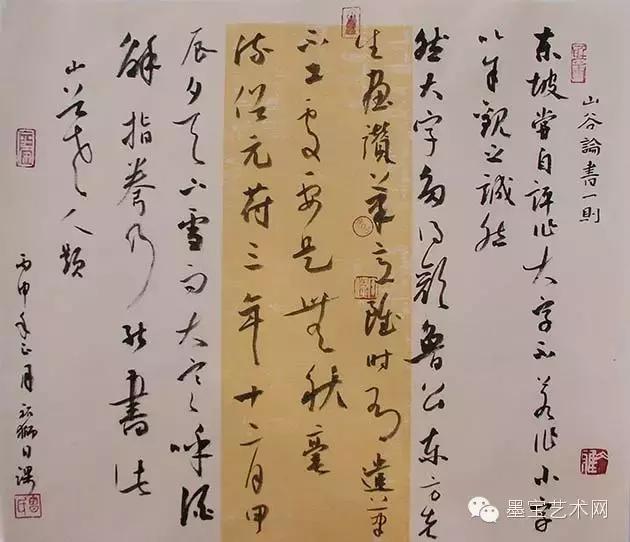 山谷論書一則
东坡嘗自評作大字不若作小字
以余觀之誠然
然大字多得顏魯公东方先
生畫讚筆意雖时有遣筆
不工處要是無秋毫
流俗元符三年十二月甲
辰夕天下雪而大寒呼酒
解指拳乃能書
山谷老人題
丙申年正月 獅日課
墨宝艺术网